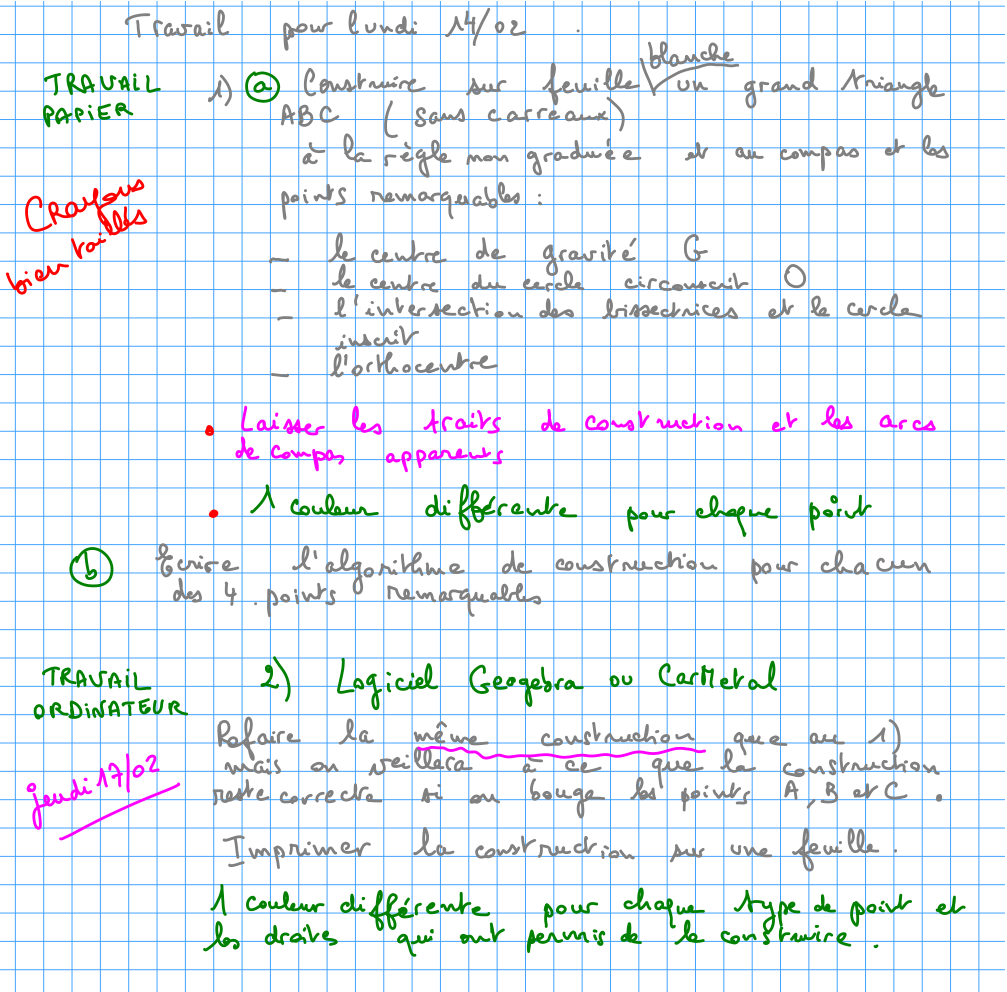 Travail pour lundi 14/02.
blanche
TRAVAIL PAPIER
1) a Construire sur feuille un grand triangle
ABC (sans carreaux)
à la règle non graduée et au compas et les
points remarquables :
Crayons bien taillés
_ le centre de gravité G
_ le centre du cercle circonscrit O
_ l'intersection des bissectrices et le cercle
inscrit
_ l'orthocentre
• Laisser les traits de construction et les arcs
de compas apparents
• 1 couleur différente pour chaque point
b Ecrire l'algorithme de construction pour chacun
des 4 points remarquables
TRAVAIL ORDINATEUR
2) Logiciel Geogebra ou CarMetal
Refaire la même construction que au 1)
mais on veillera à ce que la construction
reste correcte si on bouge les points A, B et C.
jeudi 17/02
Imprimer la construction sur une feuille.
1 couleur différente pour chaque type de point et
les droites qui ont permis de le construire.